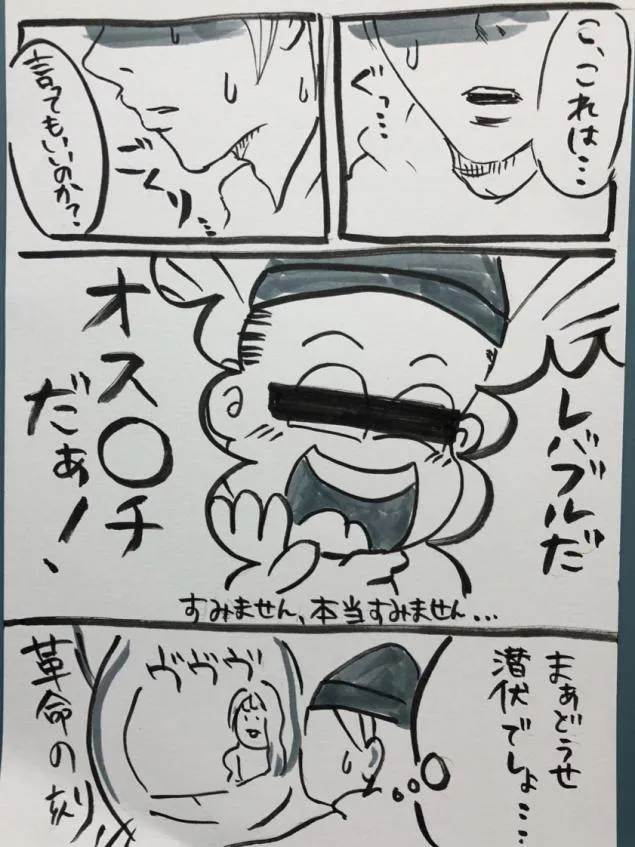 こ、これは…
ぐっ…
ごくり…
言ってもいいのか？
レバブルだ
オス〇チ
だぁ！
すみません、本当すみません…
まぁどうせ
潜伏でしょ…
ヴヴヴ
革命の刻